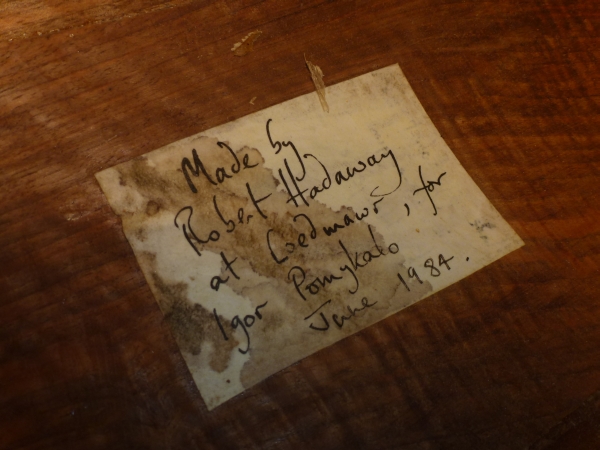 Made by
Robert Hadaway
at Coedmawr, for
Igor Pomykalo
June 1984.